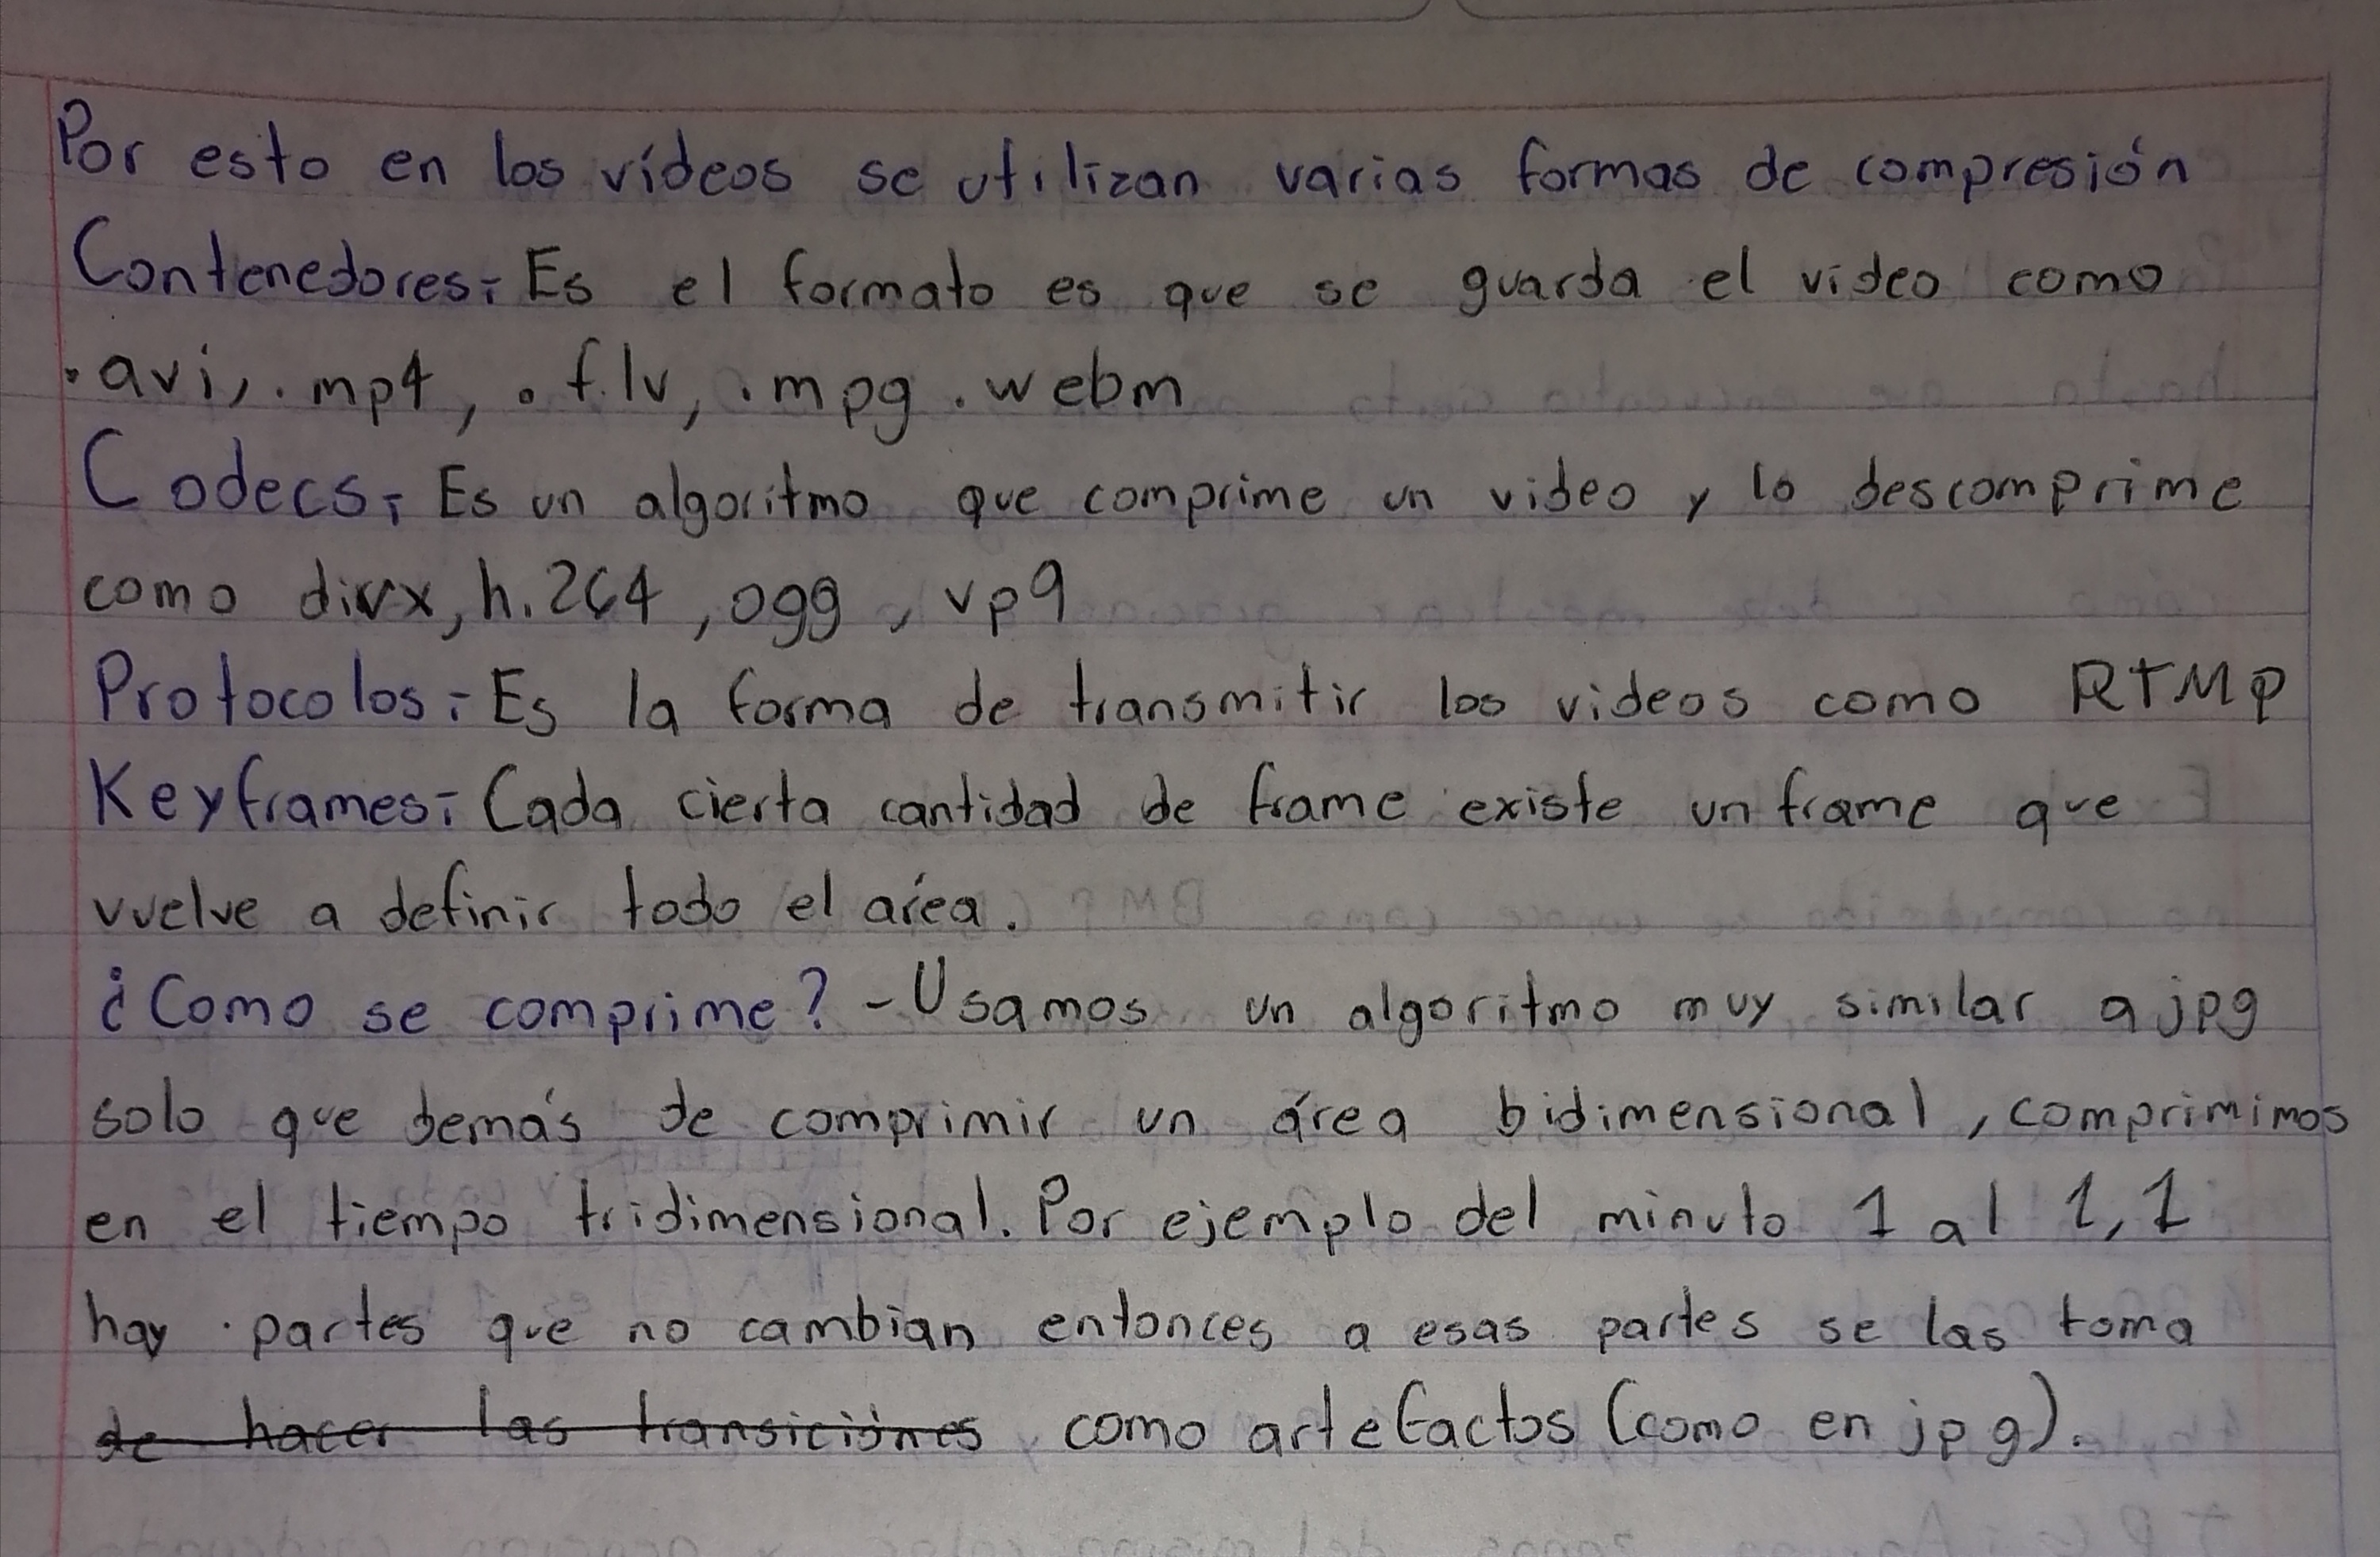 Por esto en los vídeos se utilizan varias formas de compresión
Contenedores:- Es el formato es que se guarda el video como
.avi, .mp4, .flv, .mpg .webm
Codecs:- Es un algoritmo que comprime un video y lo descomprime
como divx, h.264, ogg, vp9
Protocolos:- Es la forma de transmitir los videos como RTMP
Keyframes:- Cada cierta cantidad de frame existe un frame que
vuelve a definir todo el aréa.
¿Como se comprime? - Usamos un algoritmo muy similar a jpg
solo que demás de comprimir un área bidimensional, comprimimos
en el tiempo tridimensional. Por ejemplo del minuto 1 al 1,1
hay partes que no cambian entonces a esas partes se las toma
de hacer las transiciónes como artefactos (como en jpg).